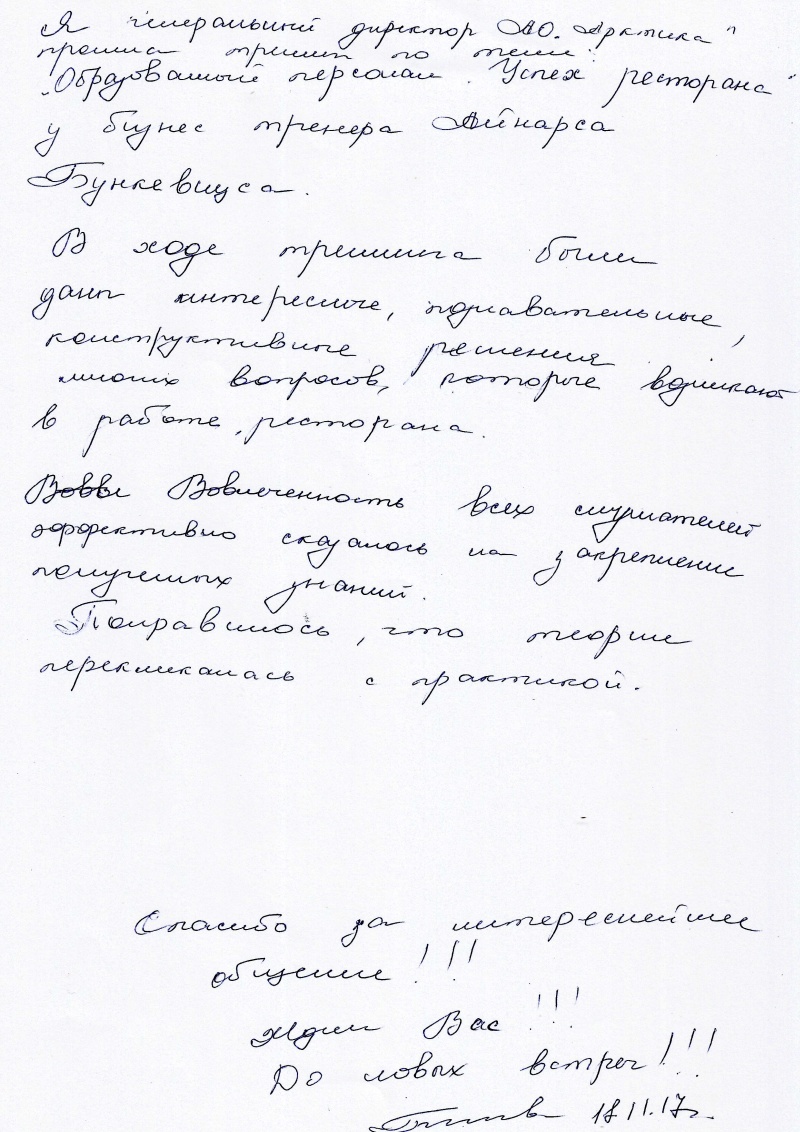 Я генеральный директор АО "Арктика"
прошла тренинг по теме:
"Образованный персонал. Успех ресторана"
у бизнес тренера Айнарса
Бункевицса.
В ходе тренинга были
даны интересные, познавательные,
конструктивные решения
многих вопросов, которые возникают
в работе ресторана.
Вовлеченность всех слушателей
эффективно сказалось на закрепление
полученных знаний.
Понравилось, что теория
перекликалась с практикой.
Спасибо за интереснейшее
общение!!!
Ждем Вас!!!
До новых встреч!!!
18.11.17г.